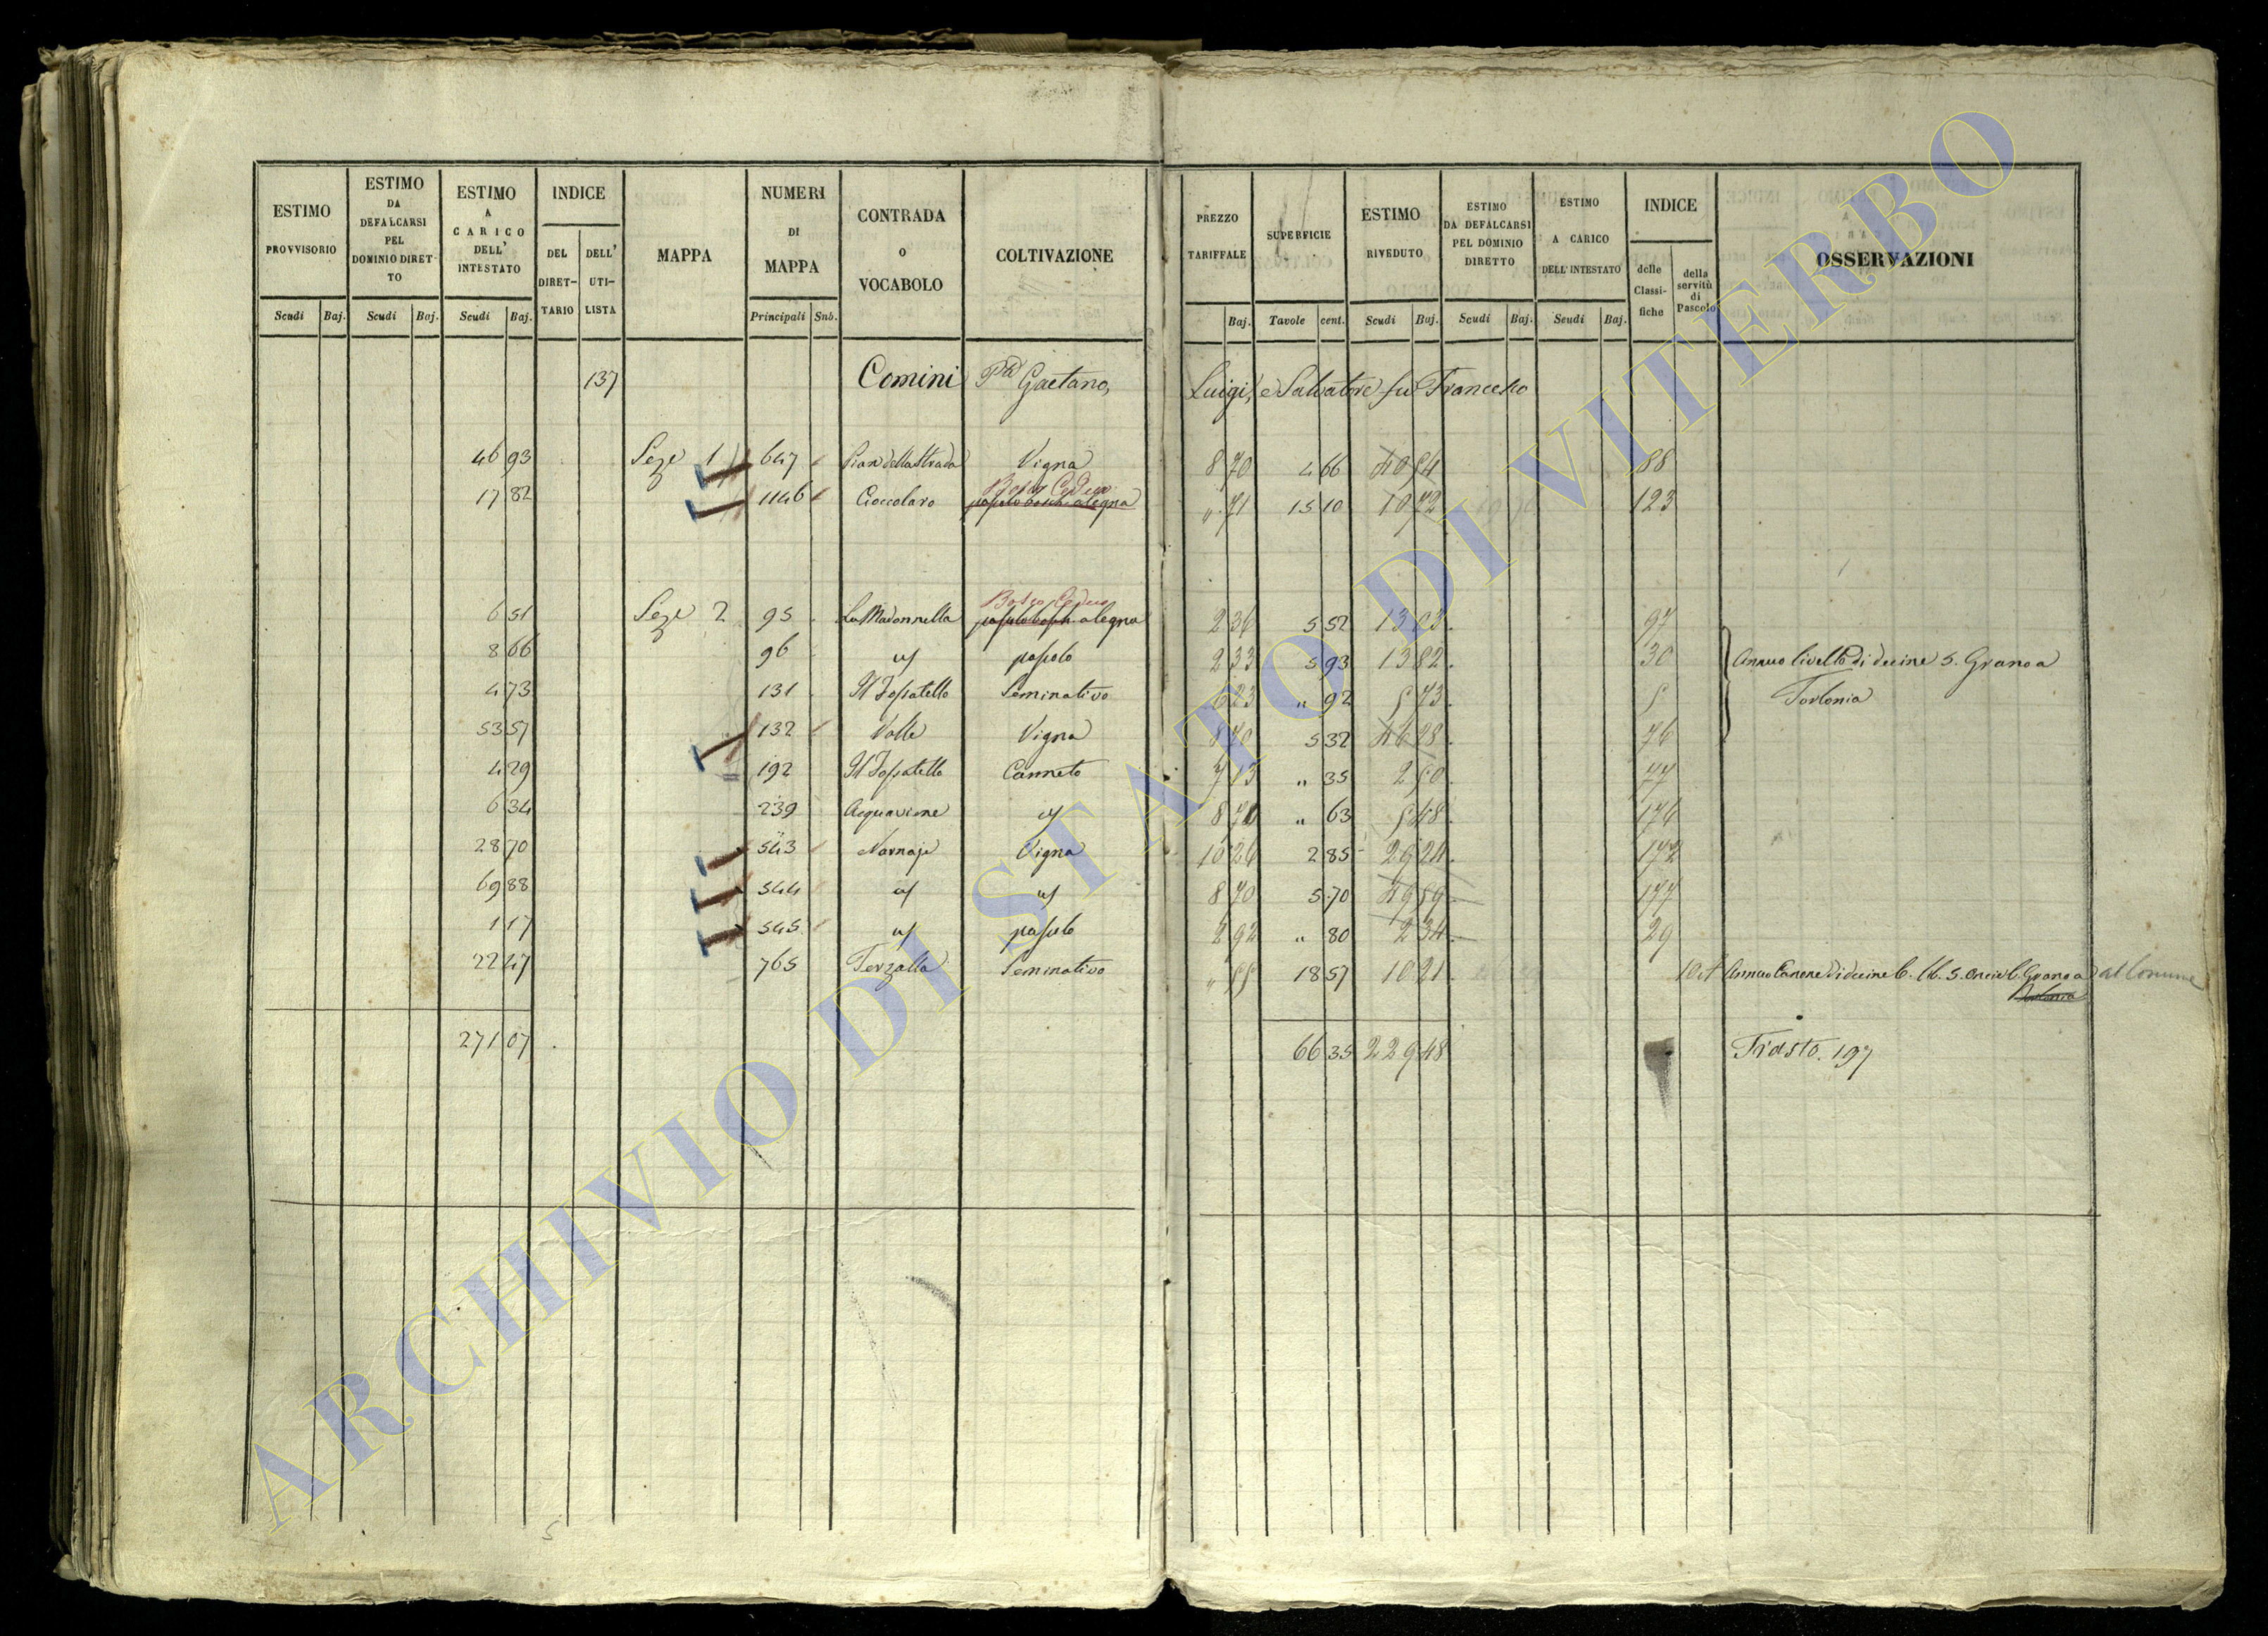 ESTIMO PROVVISORIO
ESTIMO DA DEFALCARSI PEL DOMINIO DIRETTO
ESTIMO A CARICO DELL' INTESTATO
INDICE
DEL DIRETTARIO
DELL' UTILISTA
MAPPA
NUMERI DI MAPPA
CONTRADA o VOCABOLO
COLTIVAZIONE
PREZZO TARIFFALE
SUPERFICIE
ESTIMO RIVEDUTO
ESTIMO DA DEFALCARSI PEL DOMINIO DIRETTO
ESTIMO A CARICO DELL' INTESTATO
INDICE
delle Classifiche
della servitù di Pascolo
OSSERVAZIONI
Scudi Baj. Scudi Baj. Scudi Baj. Principali Sub. Baj. Tavole cent. Scudi Baj. Scudi Baj. Scudi Baj.
137 Comini Gaetano, Luigi, e Salvatore fu Francesco
46 93 Seze 1 647 Pian della Strada Vigna 8 70 4 66 40 54 88
Bosco Ceduo
17 82 1146 Cioccolaro 71 15 10 10 72 123
Bosco Ceduo
6 51 Seze 2 95 La Madonnella 2 36 5 52 13 03 97
8 66 96 pascolo 2 33 5 93 13 82 30 Annuo livello di decine 5. Grano a
4 73 131 Il Fossatello Seminativo 6 23 " 92 5 73 5 Torlonia
53 57 132 Valle Vigna 8 70 5 32 46 28 76
4 29 192 Il Fossatello Canneto 7 13 " 35 2 50 77
6 34 239 8 70 " 63 5 48 176
28 70 543 Vigna 10 26 2 85 29 24 172
69 88 544 8 70 5 70 49 59 177
1 17 545 pascolo 2 92 " 80 2 34 29
22 47 765 Terzalla Seminativo " 55 18 57 10 21 Annuo Canone di decine 6. Grano a al Comune
Torlonia
271 07 66 35 229 48 197
5
ARCHIVIO DI STATO DI VITERBO